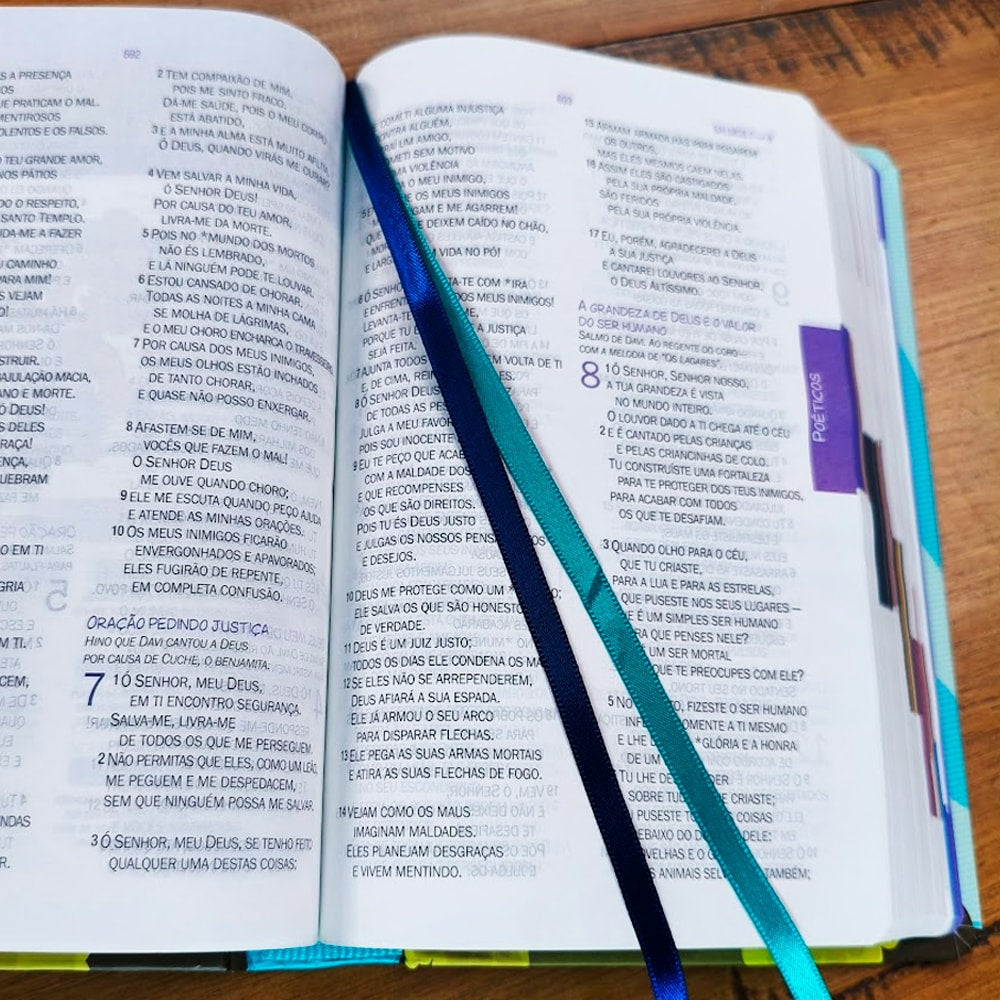 692
S A PRESENÇA
OS
UE PRATICAM O MAL.
MENTIROSOS
OLENTOS E OS FALSOS.
O TEU GRANDE AMOR,
NOS PÁTIOS
DO O RESPEITO,
SANTO TEMPLO.
UDA-ME A FAZER
U CAMINHO
PARA MIM!
S VEJAM
O!
STRUIR.
AJULAÇÃO MACIA,
ANO E MORTE.
Ó DEUS!
S DELES
RAÇA!
ENÇA,
UEBRAM
O EM TI
GRIA
M TI.
CEM,
NDAS
R.
2 TEM COMPAIXÃO DE MIM,
POIS ME SINTO FRACO.
DÁ-ME SAÚDE, POIS O MEU CORPO
ESTÁ ABATIDO,
3 E A MINHA ALMA ESTÁ MUITO AFLITA.
Ó DEUS, QUANDO VIRÁS ME CURAR?
4 VEM SALVAR A MINHA VIDA,
Ó SENHOR DEUS!
POR CAUSA DO TEU AMOR,
LIVRA-ME DA MORTE.
5 POIS NO *MUNDO DOS MORTOS
NÃO ÉS LEMBRADO,
E LÁ NINGUÉM PODE TE LOUVAR.
6 ESTOU CANSADO DE CHORAR.
TODAS AS NOITES A MINHA CAMA
SE MOLHA DE LÁGRIMAS,
E O MEU CHORO ENCHARCA O TRAVESSEIRO.
7 POR CAUSA DOS MEUS INIMIGOS,
OS MEUS OLHOS ESTÃO INCHADOS
DE TANTO CHORAR,
E QUASE NÃO POSSO ENXERGAR.
8 AFASTEM-SE DE MIM,
VOCÊS QUE FAZEM O MAL!
O SENHOR DEUS
ME OUVE QUANDO CHORO;
9 ELE ME ESCUTA QUANDO PEÇO AJUDA
E ATENDE AS MINHAS ORAÇÕES.
10 OS MEUS INIMIGOS FICARÃO
ENVERGONHADOS E APAVORADOS;
ELES FUGIRÃO DE REPENTE,
EM COMPLETA CONFUSÃO.
ORAÇÃO PEDINDO JUSTIÇA
HINO QUE DAVI CANTOU A DEUS
POR CAUSA DE CUCHE, O BENJAMITA.
7 1 Ó SENHOR, MEU DEUS,
EM TI ENCONTRO SEGURANÇA.
SALVA-ME, LIVRA-ME
DE TODOS OS QUE ME PERSEGUEM.
2 NÃO PERMITAS QUE ELES, COMO UM LEÃO,
ME PEGUEM E ME DESPEDACEM,
SEM QUE NINGUÉM POSSA ME SALVAR.
3 Ó SENHOR, MEU DEUS, SE TENHO FEITO
QUALQUER UMA DESTAS COISAS:
COMETI ALGUMA INJUSTIÇA
CONTRA ALGUÉM,
UM AMIGO,
SEM MOTIVO
VIOLÊNCIA
O MEU INIMIGO,
OS MEUS INIMIGOS
E ME AGARREM!
DEIXEM CAÍDO NO CHÃO,
VIDA NO PÓ!
6 Ó SENHOR COM *IRA
E ENFRENTA DOS MEUS INIMIGOS!
LEVANTA-TE
PORQUE TU A JUSTIÇA
SEJA FEITA.
7 AJUNTA TODOS EM VOLTA DE TI
E, DE CIMA,
8 Ó SENHOR DEUS,
DE TODAS AS
JULGA A MEU FAVOR
POIS SOU INOCENTE
9 EU TE PEÇO QUE
COM A MALDADE DOS
E QUE RECOMPENSES
OS QUE SÃO DIREITOS.
POIS TU ÉS DEUS JUSTO
E JULGAS OS NOSSOS
E DESEJOS.
10 DEUS ME PROTEGE COMO UM
ELE SALVA OS QUE SÃO HONESTOS
DE VERDADE.
11 DEUS É UM JUIZ JUSTO;
TODOS OS DIAS ELE CONDENA OS
12 SE ELES NÃO SE ARREPENDEREM,
DEUS AFIARÁ A SUA ESPADA.
ELE JÁ ARMOU O SEU ARCO
PARA DISPARAR FLECHAS.
13 ELE PEGA AS SUAS ARMAS MORTAIS
E ATIRA AS SUAS FLECHAS DE FOGO.
14 VEJAM COMO OS MAUS
IMAGINAM MALDADES.
ELES PLANEJAM DESGRAÇAS
E VIVEM MENTINDO.
15 ARMAM ARMADILHAS PARA PEGAREM
OS OUTROS,
MAS ELES MESMOS CAEM NELAS.
16 ASSIM ELES SÃO CASTIGADOS
PELA SUA PRÓPRIA MALDADE,
SÃO FERIDOS
PELA SUA PRÓPRIA VIOLÊNCIA.
17 EU, PORÉM, AGRADECEREI A DEUS
A SUA JUSTIÇA
E CANTAREI LOUVORES AO SENHOR,
O DEUS ALTÍSSIMO.
A GRANDEZA DE DEUS E O VALOR
DO SER HUMANO
SALMO DE DAVI. AO REGENTE DO CORO —
COM A MELODIA DE "OS LAGARES".
8 1 Ó SENHOR, SENHOR NOSSO,
A TUA GRANDEZA É VISTA
NO MUNDO INTEIRO.
O LOUVOR DADO A TI CHEGA ATÉ O CÉU
2 E É CANTADO PELAS CRIANÇAS
E PELAS CRIANCINHAS DE COLO.
TU CONSTRUÍSTE UMA FORTALEZA
PARA TE PROTEGER DOS TEUS INIMIGOS,
PARA ACABAR COM TODOS
OS QUE TE DESAFIAM.
3 QUANDO OLHO PARA O CÉU,
QUE TU CRIASTE,
PARA A LUA E PARA AS ESTRELAS,
QUE PUSESTE NOS SEUS LUGARES—
É UM SIMPLES SER HUMANO
QUE PENSES NELE?
SER MORTAL
QUE TE PREOCUPES COM ELE?
5 NO FIZESTE O SER HUMANO
SOMENTE A TI MESMO
E LHE *GLÓRIA E A HONRA
DE UM
TU LHE
SOBRE CRIASTE;
PUSESTE COISAS
DELE:
OVELHAS E O
ANIMAIS TAMBÉM;
POÉTICOS